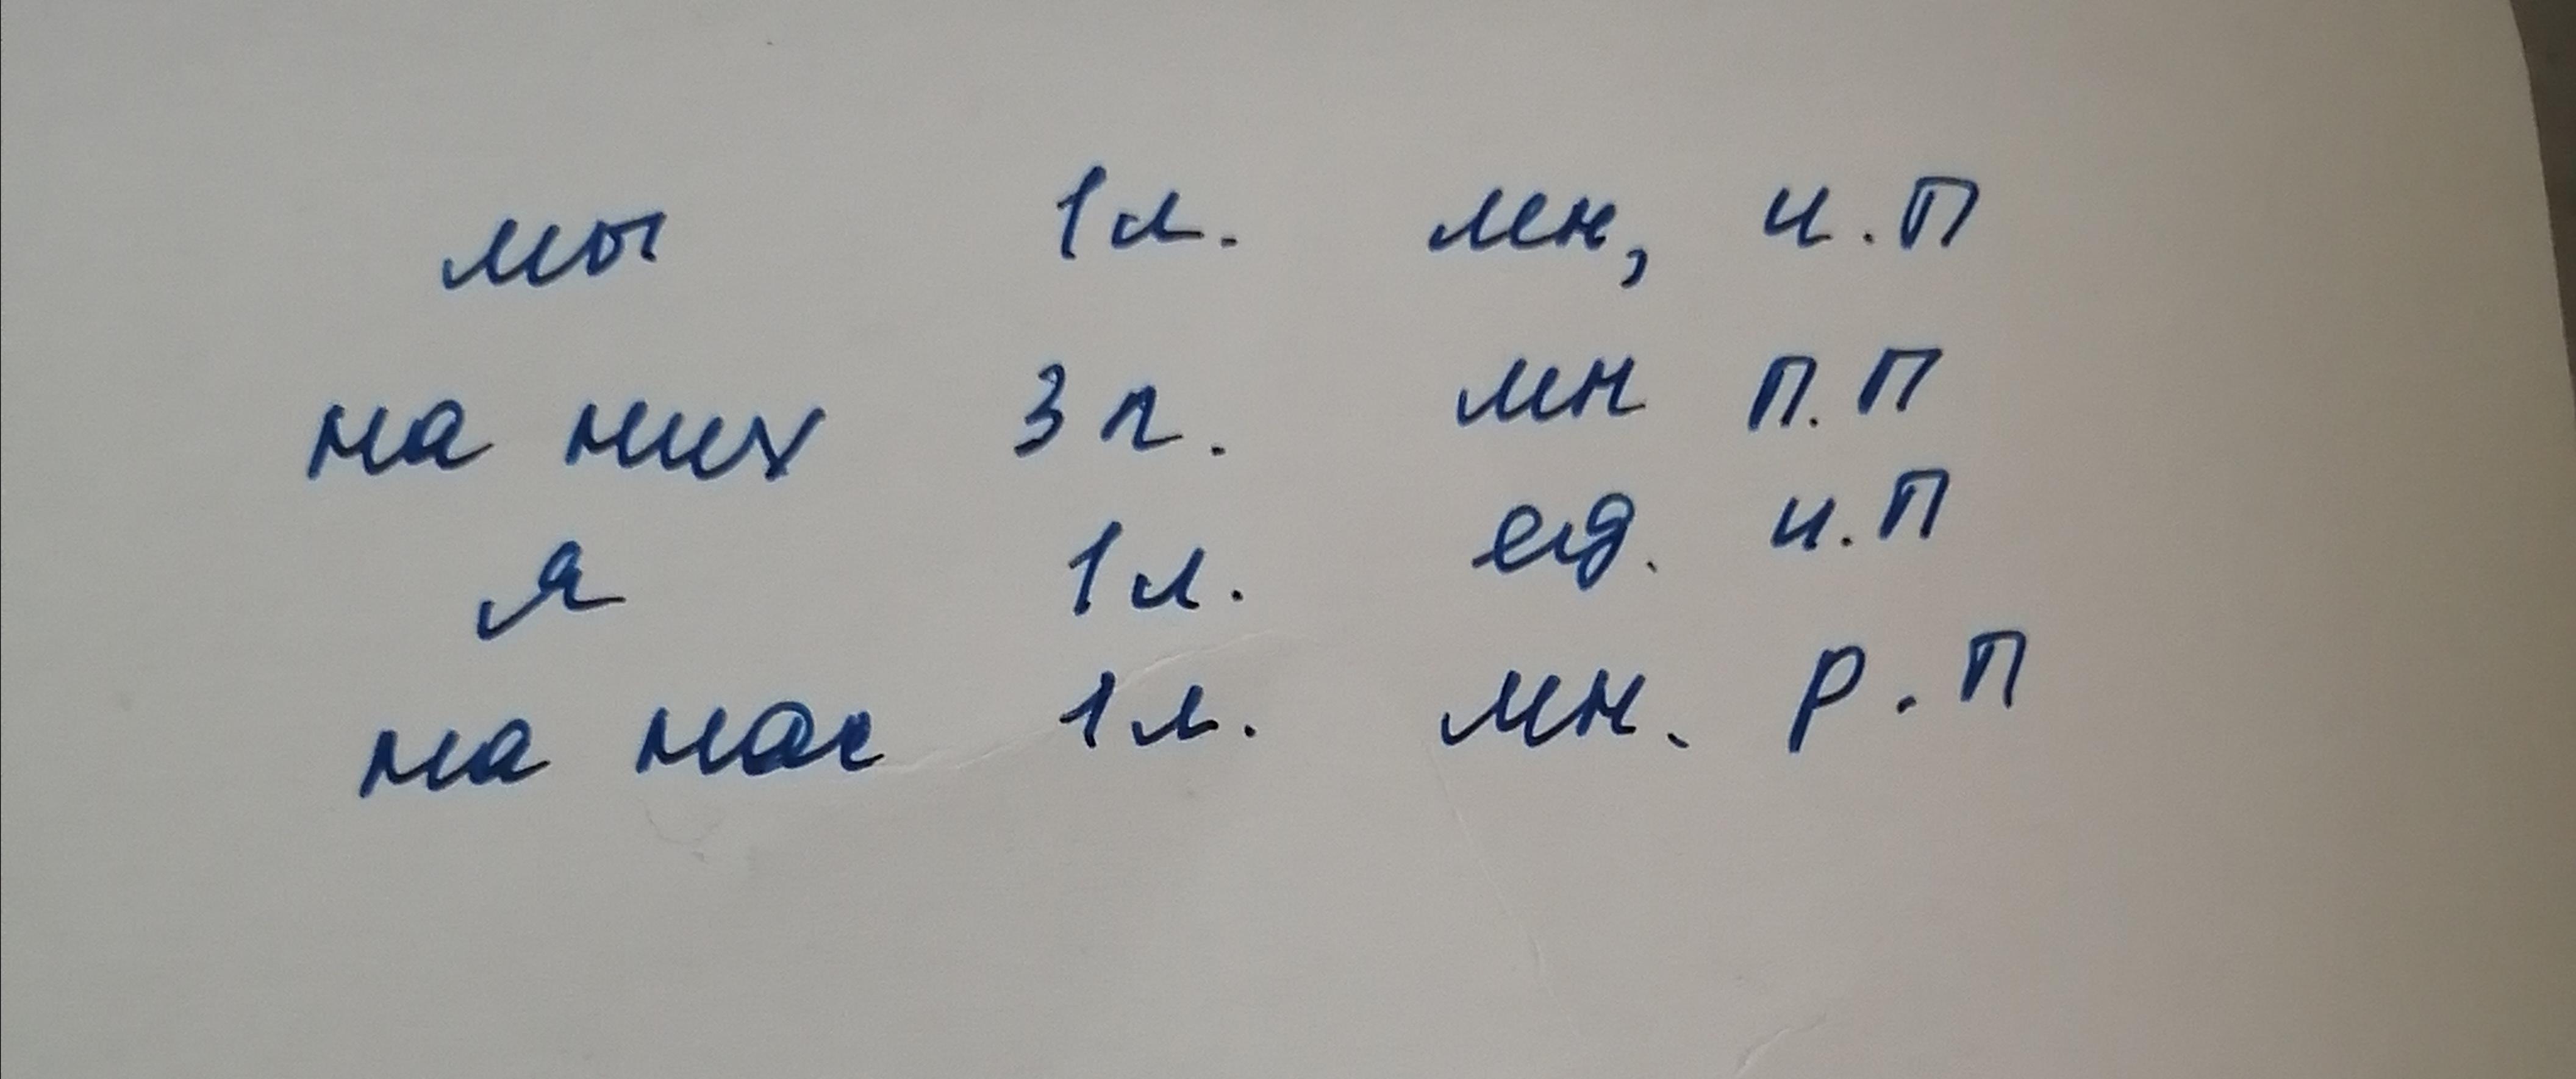 мы 1л. мн, и.п
на них 3л. мн п.п
я 1л. ед. и.п
на нас 1л. мн. р.п